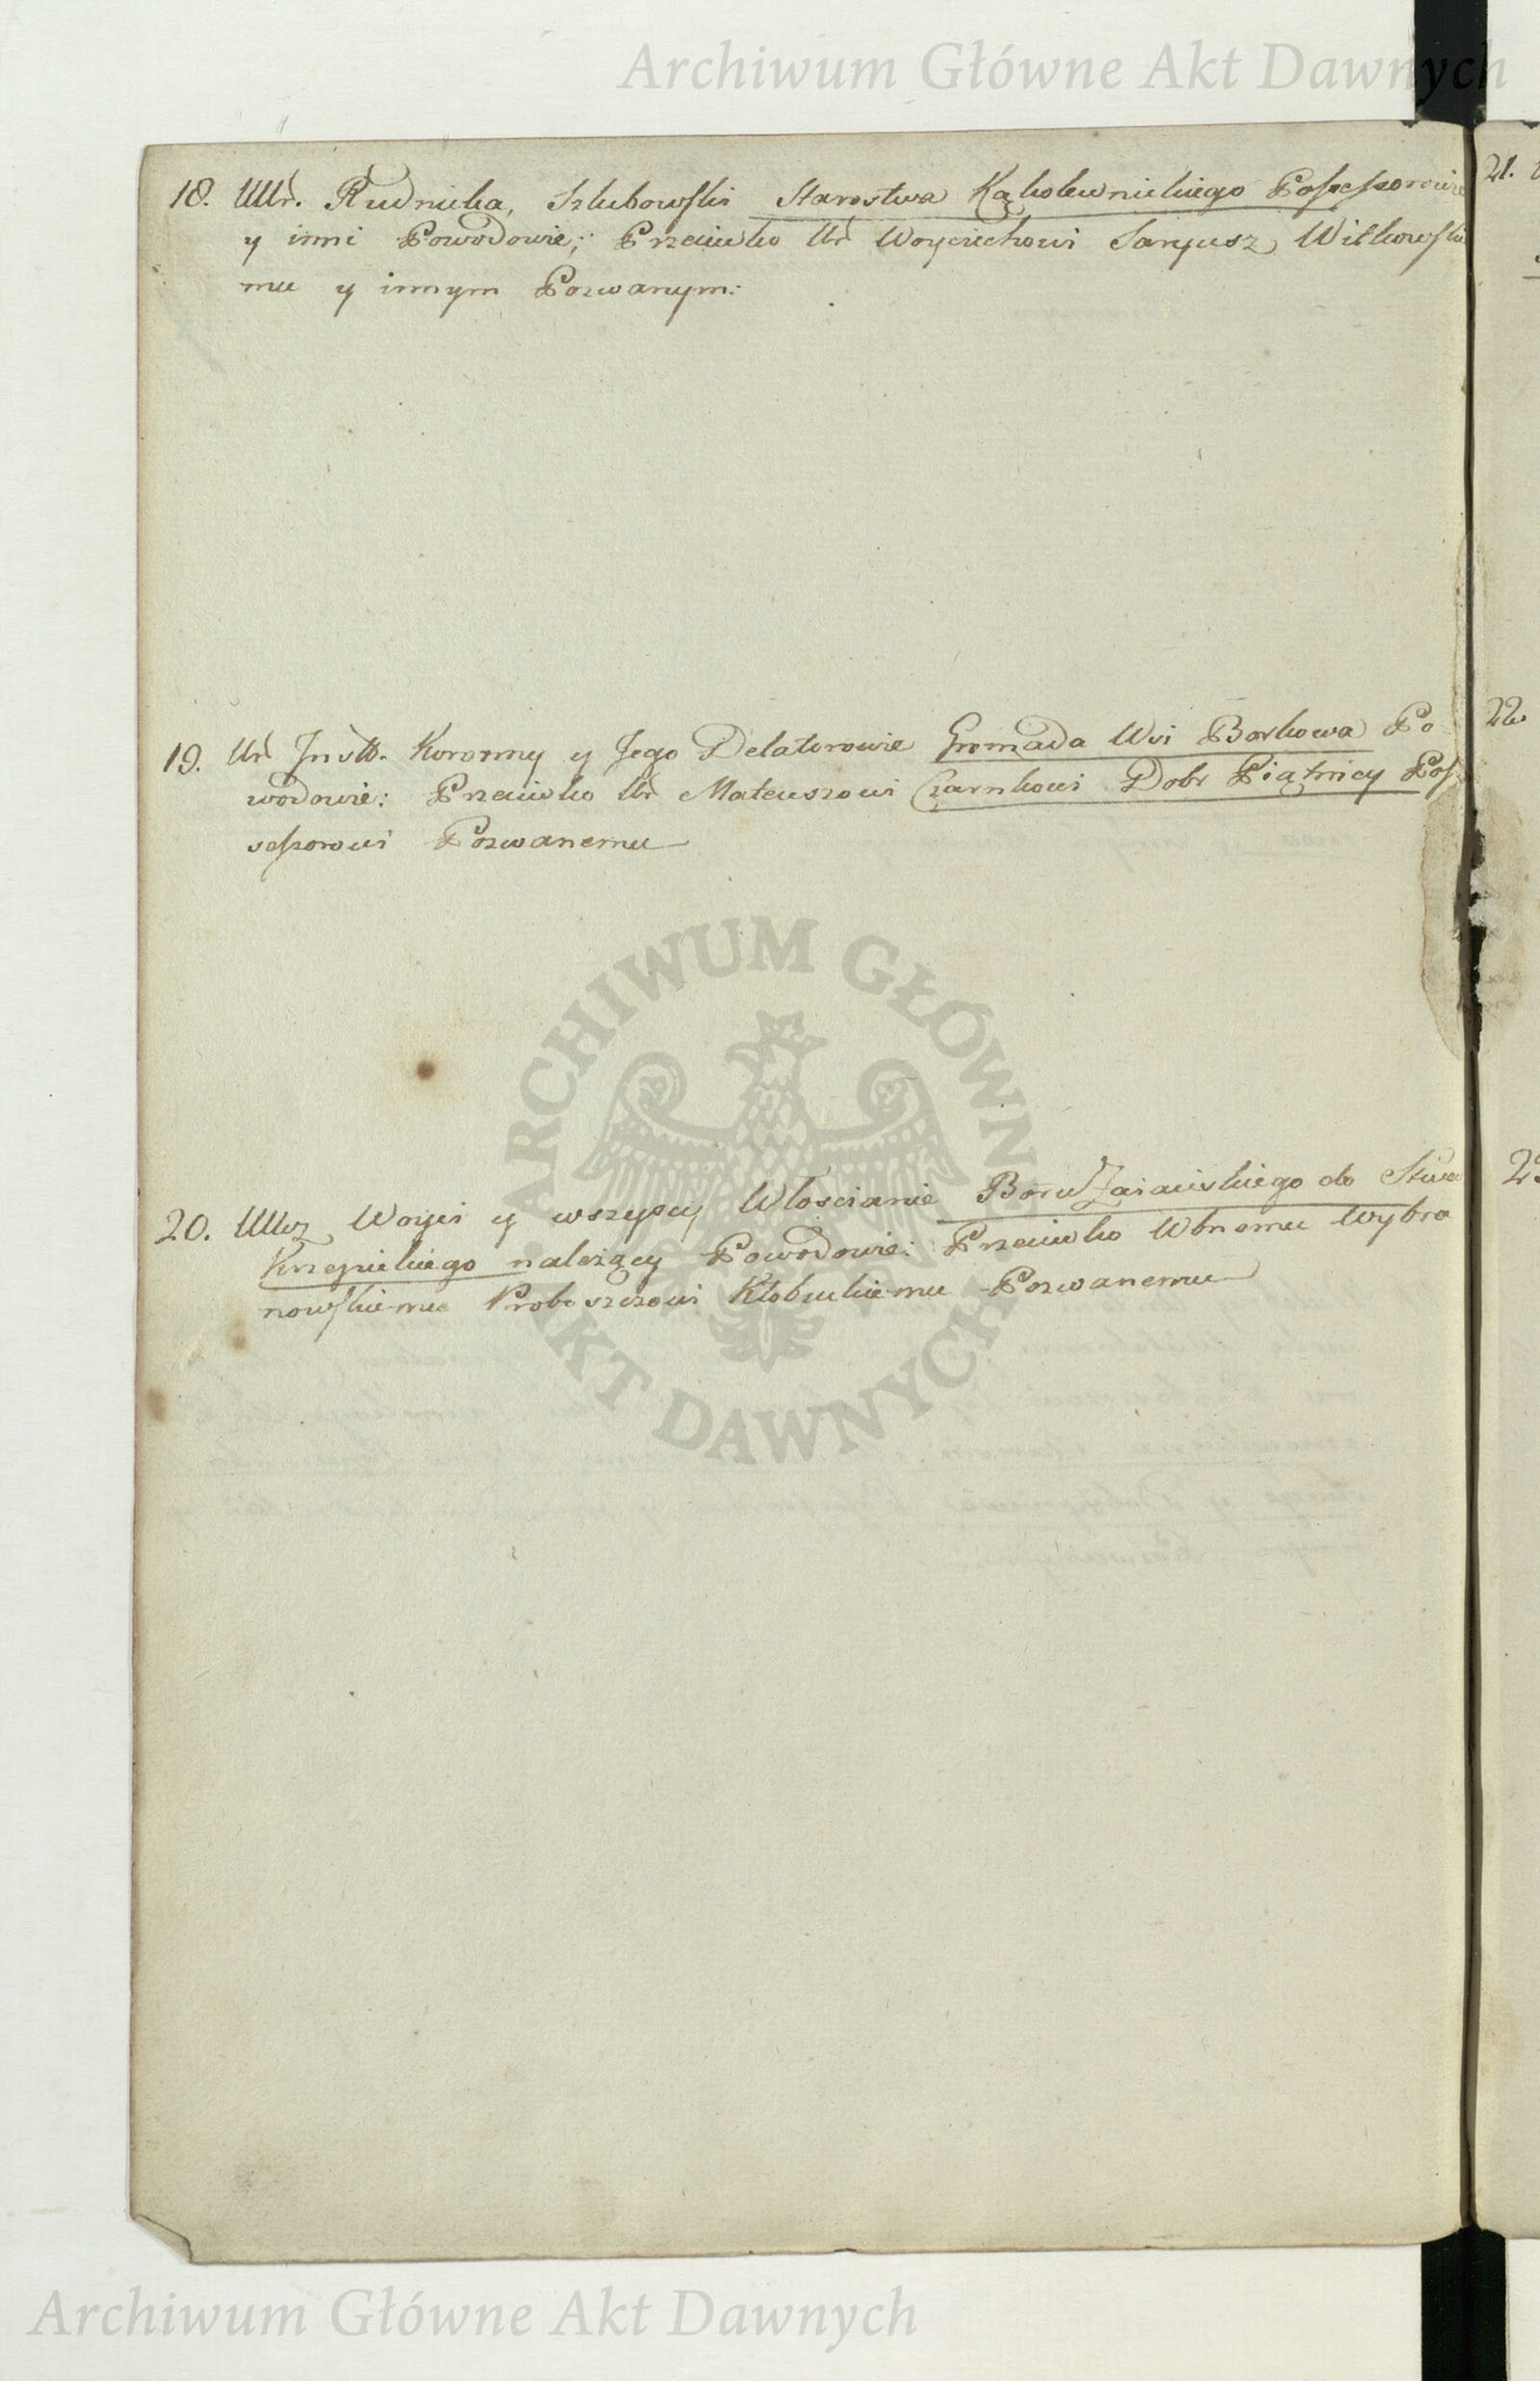 Archiwum Główne Akt Dawnych
18. UUr. Rudnicka, Szlubowski Starostwa Kąkolewnickiego Possessorowie
y inni Powodowie; Przeciwko Ur Woyciechowi Saryusz Wilkowskie
mu y innym Pozwanym:
19. Ur Instt. Koronny y Jego Delatorowie Gromada Wsi Borkowa Po
wodowie: Przeciwko Ur Mateuszowi Czarnkowi Dobr Piątnicy Pos
sessorowi Pozwanemu
20. Woyci y wszyscy Włoscianie Boru Zaiaciskiego do Stwa
Krzepickiego należący Powodowie: Przeciwko Wbnemu Wybra
nowskiemu Proboszczowi Kłobuckiemu Pozwanemu
21.
22
ARCHIWUM GŁÓWNE AKT DAWNYCH
Archiwum Główne Akt Dawnych